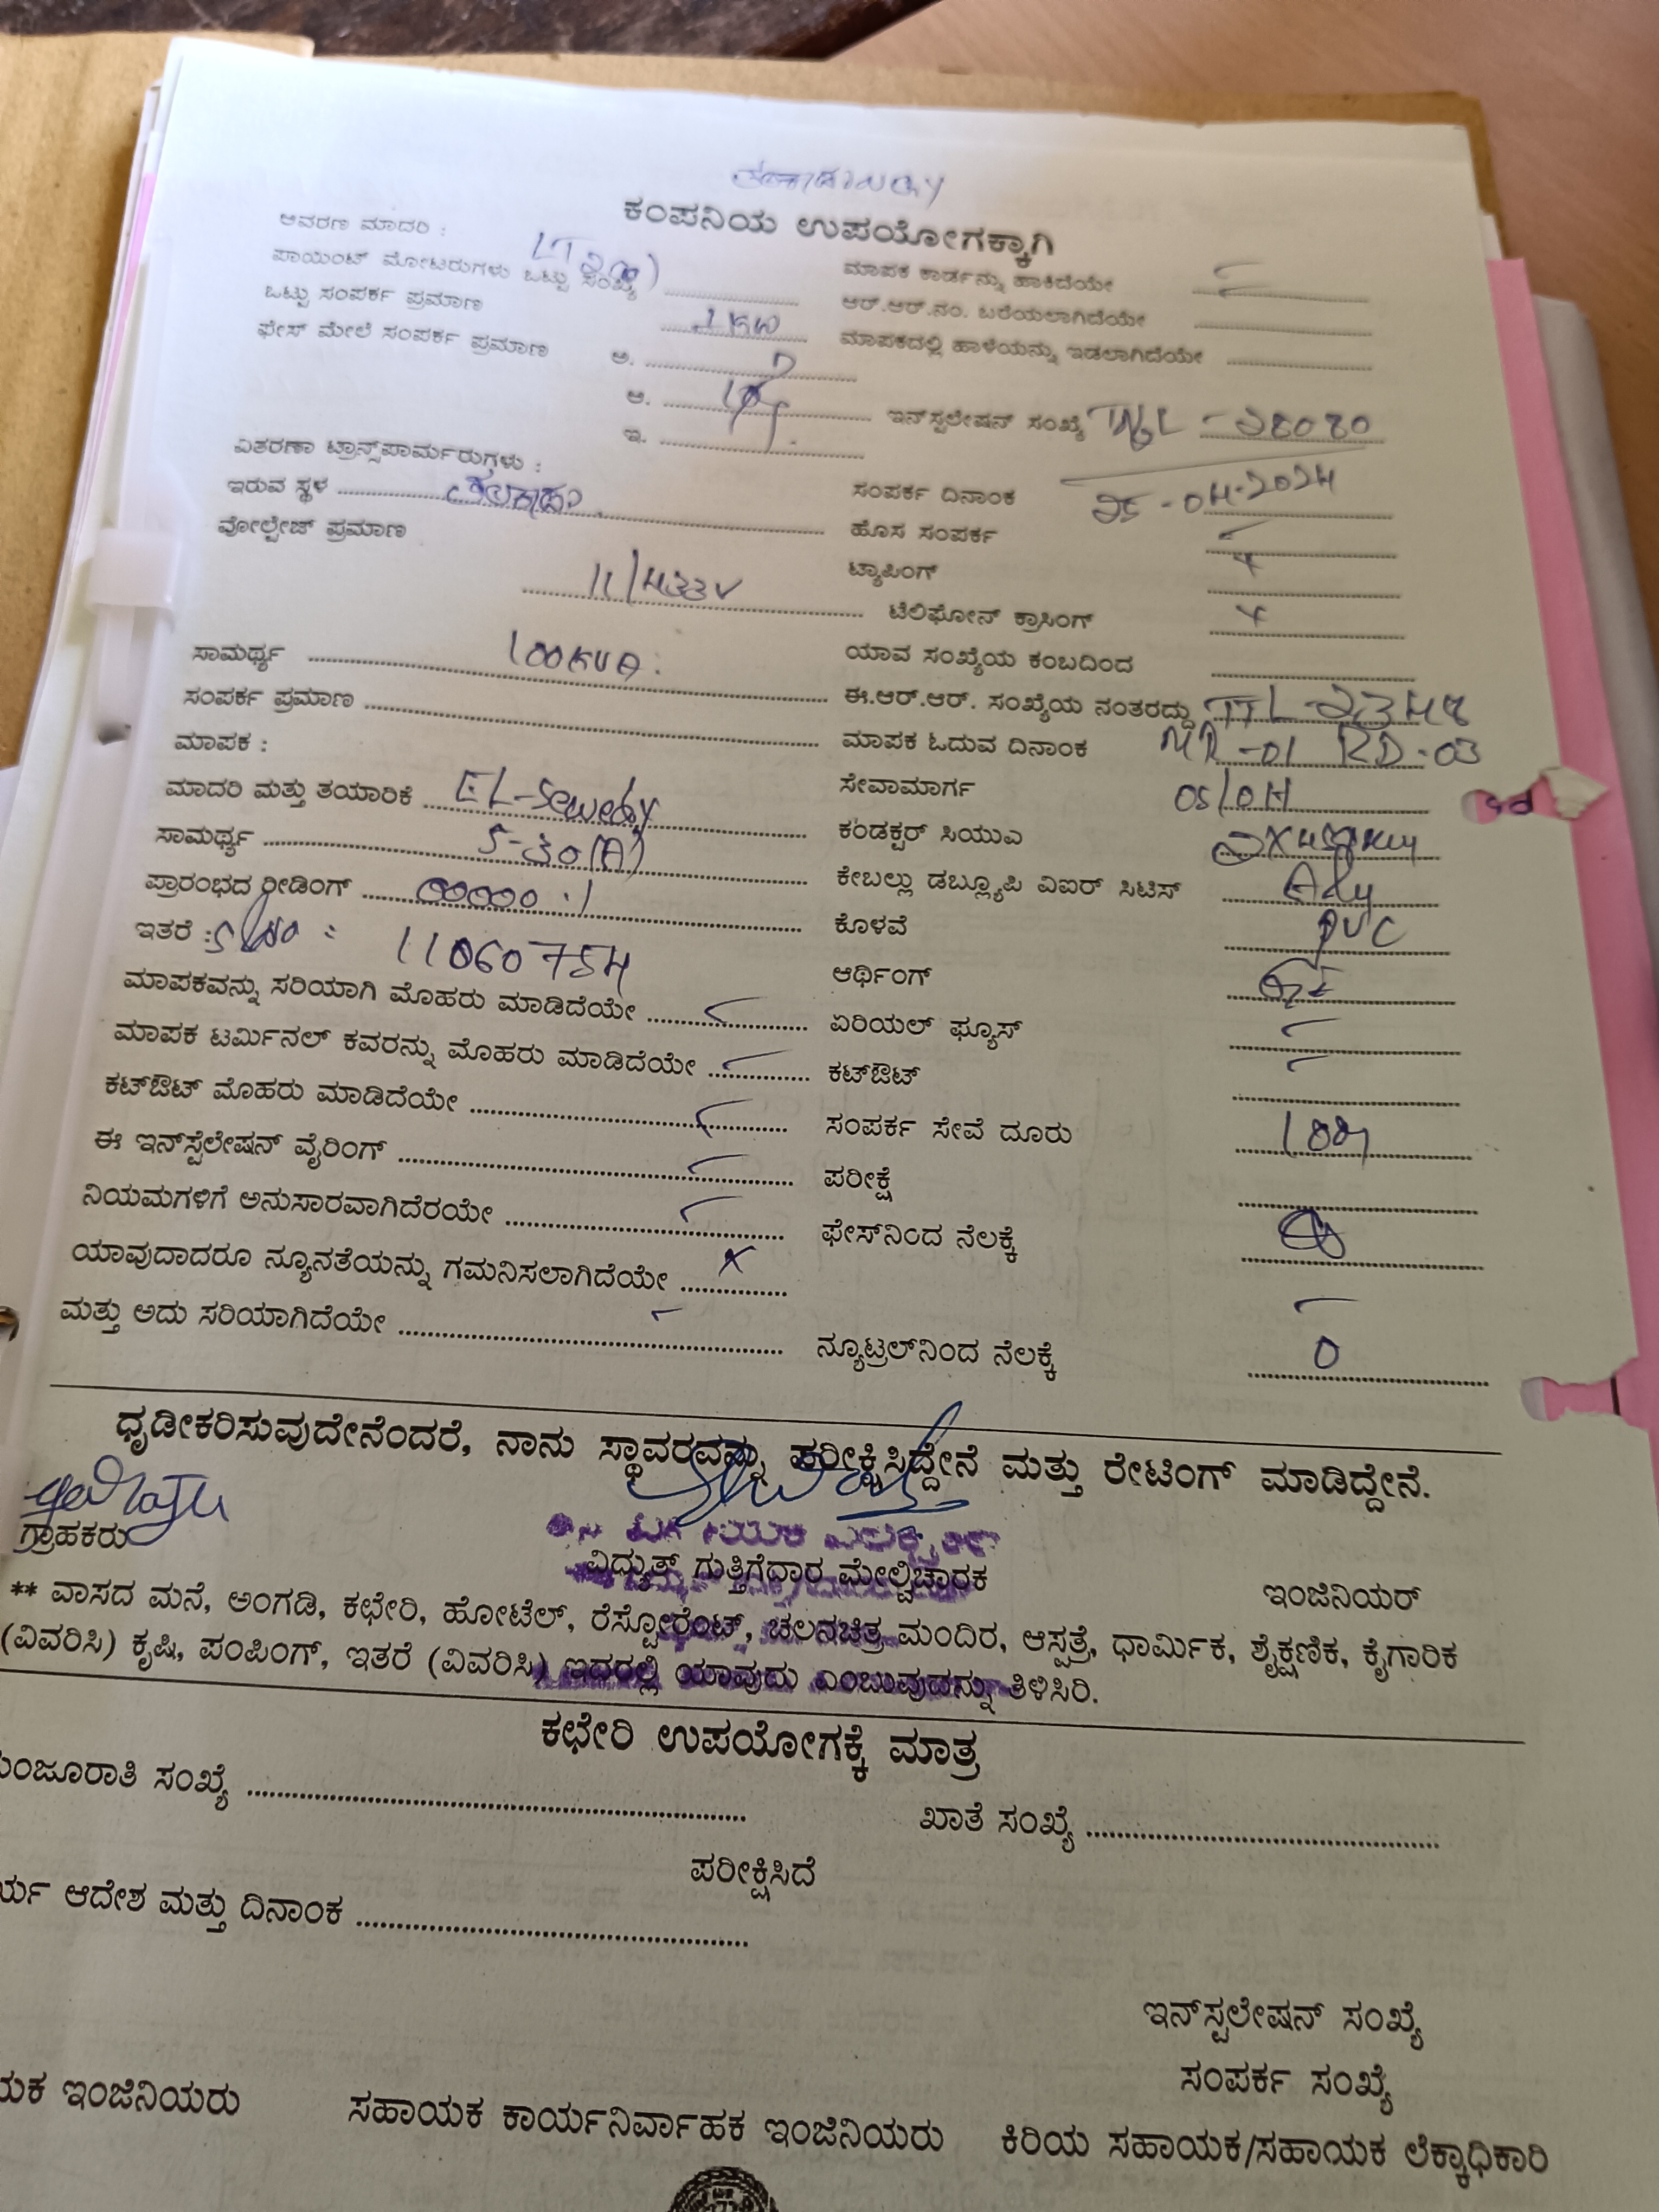 ಕಂಪನಿಯ ಉಪಯೋಗಕ್ಕಾಗಿ
ಆವರಣ ಮಾದರಿ :
ಪಾಯಿಂಟ್ ಮೋಟರುಗಳು ಒಟ್ಟು ಸಂಖ್ಯೆ ..................
ಮಾಪಕ ಕಾರ್ಡನ್ನು ಹಾಕಿದೆಯೇ ..................
ಒಟ್ಟು ಸಂಪರ್ಕ ಪ್ರಮಾಣ 1 KW
ಆರ್.ಆರ್.ನಂ. ಬರೆಯಲಾಗಿದೆಯೇ ..................
ಫೇಸ್ ಮೇಲೆ ಸಂಪರ್ಕ ಪ್ರಮಾಣ ಅ. ..................
ಮಾಪಕದಲ್ಲಿ ಹಾಳೆಯನ್ನು ಇಡಲಾಗಿದೆಯೇ ..................
ಆ. ..................
ಇನ್‌ಸ್ಟಲೇಷನ್ ಸಂಖ್ಯೆ TNGL - 28080
ಇ. ..................
ವಿತರಣಾ ಟ್ರಾನ್ಸ್‌ಪಾರ್ಮರುಗಳು :
ಇರುವ ಸ್ಥಳ ..................
ಸಂಪರ್ಕ ದಿನಾಂಕ 25-04-2024
ವೋಲ್ಟೇಜ್ ಪ್ರಮಾಣ 11/433V
ಹೊಸ ಸಂಪರ್ಕ ..................
ಟ್ಯಾಪಿಂಗ್ x
ಟೆಲಿಫೋನ್ ಕ್ರಾಸಿಂಗ್ x
ಸಾಮರ್ಥ್ಯ 100KVA
ಯಾವ ಸಂಖ್ಯೆಯ ಕಂಬದಿಂದ ..................
ಸಂಪರ್ಕ ಪ್ರಮಾಣ ..................
ಈ.ಆರ್.ಆರ್. ಸಂಖ್ಯೆಯ ನಂತರದ್ದು TTL-2348
ಮಾಪಕ :
ಮಾಪಕ ಓದುವ ದಿನಾಂಕ MR-01 RD-03
ಮಾದರಿ ಮತ್ತು ತಯಾರಿಕೆ EL-Sewedy
ಸೇವಾಮಾರ್ಗ OS/OH
ಸಾಮರ್ಥ್ಯ 5-30(A)
ಕಂಡಕ್ಟರ್ ಸಿಯುಎ
ಪ್ರಾರಂಭದ ರೀಡಿಂಗ್ 00000.1
ಕೇಬಲ್ಲು ಡಬ್ಲ್ಯೂಪಿ ವಿಐರ್ ಸಿಟಿಸ್
ಇತರೆ : Sl No = 11060754
ಕೊಳವೆ PVC
ಆರ್ಥಿಂಗ್
ಮಾಪಕವನ್ನು ಸರಿಯಾಗಿ ಮೊಹರು ಮಾಡಿದೆಯೇ ..................
ಏರಿಯಲ್ ಫ್ಯೂಸ್ ..................
ಮಾಪಕ ಟರ್ಮಿನಲ್ ಕವರನ್ನು ಮೊಹರು ಮಾಡಿದೆಯೇ ..................
ಕಟ್‌ಔಟ್ ..................
ಕಟ್‌ಔಟ್ ಮೊಹರು ಮಾಡಿದೆಯೇ ..................
ಸಂಪರ್ಕ ಸೇವೆ ದೂರು 10m
ಈ ಇನ್‌ಸ್ಟೆಲೇಷನ್ ವೈರಿಂಗ್ ..................
ಪರೀಕ್ಷೆ ..................
ನಿಯಮಗಳಿಗೆ ಅನುಸಾರವಾಗಿದೆರಯೇ ..................
ಫೇಸ್‌ನಿಂದ ನೆಲಕ್ಕೆ ..................
ಯಾವುದಾದರೂ ನ್ಯೂನತೆಯನ್ನು ಗಮನಿಸಲಾಗಿದೆಯೇ x
ಮತ್ತು ಅದು ಸರಿಯಾಗಿದೆಯೇ ..................
ನ್ಯೂಟ್ರಲ್‌ನಿಂದ ನೆಲಕ್ಕೆ 0
ಧೃಡೀಕರಿಸುವುದೇನೆಂದರೆ, ನಾನು ಸ್ಥಾವರವನ್ನು ಪರೀಕ್ಷಿಸಿದ್ದೇನೆ ಮತ್ತು ರೇಟಿಂಗ್ ಮಾಡಿದ್ದೇನೆ.
ಗ್ರಾಹಕರು
ವಿಧ್ಯುತ್ ಗುತ್ತಿಗೆದಾರ ಮೇಲ್ವಿಚಾರಕ
ಇಂಜಿನಿಯರ್
** ವಾಸದ ಮನೆ, ಅಂಗಡಿ, ಕಛೇರಿ, ಹೋಟೆಲ್, ರೆಸ್ಟೋರೆಂಟ್, ಚಲನಚಿತ್ರ ಮಂದಿರ, ಆಸ್ಪತ್ರೆ, ಧಾರ್ಮಿಕ, ಶೈಕ್ಷಣಿಕ, ಕೈಗಾರಿಕ
(ವಿವರಿಸಿ) ಕೃಷಿ, ಪಂಪಿಂಗ್, ಇತರೆ (ವಿವರಿಸಿ) ಇದರಲ್ಲಿ ಯಾವುದು ಎಂಬುವುದನ್ನು ತಿಳಿಸಿರಿ.
ಕಛೇರಿ ಉಪಯೋಗಕ್ಕೆ ಮಾತ್ರ
ಮಂಜೂರಾತಿ ಸಂಖ್ಯೆ ..................
ಖಾತೆ ಸಂಖ್ಯೆ ..................
ಪರೀಕ್ಷಿಸಿದೆ
ರ್ಯ ಆದೇಶ ಮತ್ತು ದಿನಾಂಕ ..................
ಇನ್‌ಸ್ಟಲೇಷನ್ ಸಂಖ್ಯೆ
ಸಂಪರ್ಕ ಸಂಖ್ಯೆ
ಯಕ ಇಂಜಿನಿಯರು
ಸಹಾಯಕ ಕಾರ್ಯನಿರ್ವಾಹಕ ಇಂಜಿನಿಯರು
ಕಿರಿಯ ಸಹಾಯಕ/ಸಹಾಯಕ ಲೆಕ್ಕಾಧಿಕಾರಿ